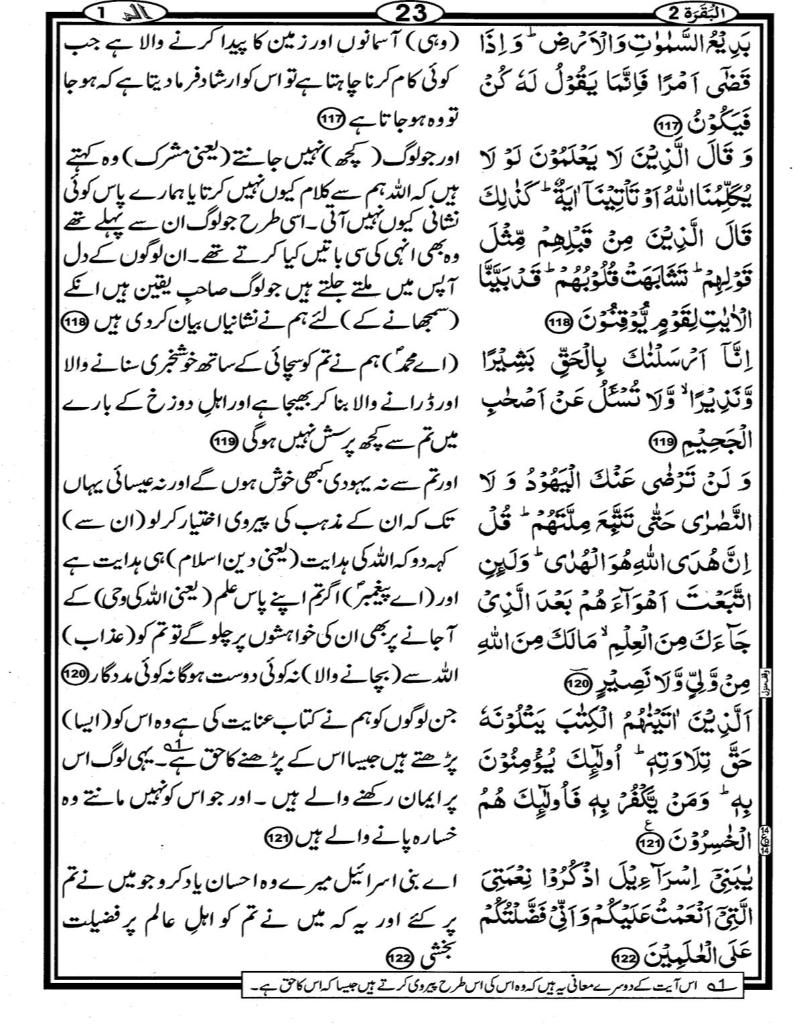 اَلْبَقَرَة 2
23
الٓمّٓ 1
بَدِيْعُ السَّمٰوٰتِ وَالْاَرْضِ ؕ وَ اِذَا
قَضٰٓى اَمْرًا فَاِنَّمَا يَقُوْلُ لَهٗ كُنْ
فَيَكُوْنُ 117
وَ قَالَ الَّذِيْنَ لَا يَعْلَمُوْنَ لَوْ لَا
يُكَلِّمُنَا اللّٰهُ اَوْ تَاْتِيْنَاۤ اٰيَةٌ ؕ كَذٰلِكَ
قَالَ الَّذِيْنَ مِنْ قَبْلِهِمْ مِّثْلَ
قَوْلِهِمْ ؕ تَشَابَهَتْ قُلُوْبُهُمْ ؕ قَدْ بَيَّنَّا
الْاٰيٰتِ لِقَوْمٍ يُّوْقِنُوْنَ 118
اِنَّاۤ اَرْسَلْنٰكَ بِالْحَقِّ بَشِيْرًا
وَّنَذِيْرًا ۙ وَّلَا تُسْـَٔلُ عَنْ اَصْحٰبِ
الْجَحِيْمِ 119
وَ لَنْ تَرْضٰى عَنْكَ الْيَهُوْدُ وَ لَا
النَّصٰرٰى حَتّٰى تَتَّبِعَ مِلَّتَهُمْ ؕ قُلْ
اِنَّ هُدَى اللّٰهِ هُوَ الْهُدٰى ؕ وَلَىِٕنِ
اتَّبَعْتَ اَهْوَآءَهُمْ بَعْدَ الَّذِيْ
جَآءَكَ مِنَ الْعِلْمِ ۙ مَا لَكَ مِنَ اللّٰهِ
مِنْ وَّلِيٍّ وَّلَا نَصِيْرٍ 120
اَلَّذِيْنَ اٰتَيْنٰهُمُ الْكِتٰبَ يَتْلُوْنَهٗ
حَقَّ تِلَاوَتِهٖ ؕ اُولٰٓىِٕكَ يُؤْمِنُوْنَ
بِهٖ ؕ وَمَنْ يَّكْفُرْ بِهٖ فَاُولٰٓىِٕكَ هُمُ
الْخٰسِرُوْنَ 121 ع
يٰبَنِيْٓ اِسْرَآءِيْلَ اذْكُرُوْا نِعْمَتِيَ
الَّتِيْٓ اَنْعَمْتُ عَلَيْكُمْ وَاَنِّيْ فَضَّلْتُكُمْ
عَلَى الْعٰلَمِيْنَ 122
(وہی) آسمانوں اور زمین کا پیدا کرنے والا ہے جب
کوئی کام کرنا چاہتا ہے تو اس کو ارشاد فرما دیتا ہے کہ ہو جا
تو وہ ہو جاتا ہے 117
اور جو لوگ (کچھ) نہیں جانتے (یعنی مشرک) وہ کہتے
ہیں کہ اللہ ہم سے کلام کیوں نہیں کرتا یا ہمارے پاس کوئی
نشانی کیوں نہیں آتی۔ اسی طرح جو لوگ ان سے پہلے تھے
وہ بھی انہی کی سی باتیں کیا کرتے تھے۔ ان لوگوں کے دل
آپس میں ملتے جلتے ہیں جو لوگ صاحبِ یقین ہیں انکے
(سمجھانے کے) لئے ہم نے نشانیاں بیان کر دی ہیں 118
(اے محمدؐ) ہم نے تم کو سچائی کے ساتھ خوشخبری سنانے والا
اور ڈرانے والا بنا کر بھیجا ہے اور اہلِ دوزخ کے بارے
میں تم سے کچھ پرسش نہیں ہو گی 119
اور تم سے نہ یہودی کبھی خوش ہوں گے اور نہ عیسائی یہاں
تک کہ ان کے مذہب کی پیروی اختیار کر لو (ان سے)
کہہ دو کہ اللہ کی ہدایت (یعنی دین اسلام) ہی ہدایت ہے
اور (اے پیغمبرؐ) اگر تم اپنے پاس علم (یعنی اللہ کی وحی) کے
آ جانے پر بھی ان کی خواہشوں پر چلو گے تو تم کو (عذاب)
اللہ سے (بچانے والا) نہ کوئی دوست ہو گا نہ کوئی مددگار 120
جن لوگوں کو ہم نے کتاب عنایت کی ہے وہ اس کو (ایسا)
پڑھتے ہیں جیسا اس کے پڑھنے کا حق ہے۔1 یہی لوگ اس
پر ایمان رکھنے والے ہیں۔ اور جو اس کو نہیں مانتے وہ
خسارہ پانے والے ہیں 121
اے بنی اسرائیل میرے وہ احسان یاد کرو جو میں نے تم
پر کئے اور یہ کہ میں نے تم کو اہلِ عالم پر فضیلت
بخشی 122
1 اس آیت کے دوسرے معانی یہ ہیں کہ وہ اس کی اس طرح پیروی کرتے ہیں جیسا کہ اس کا حق ہے۔